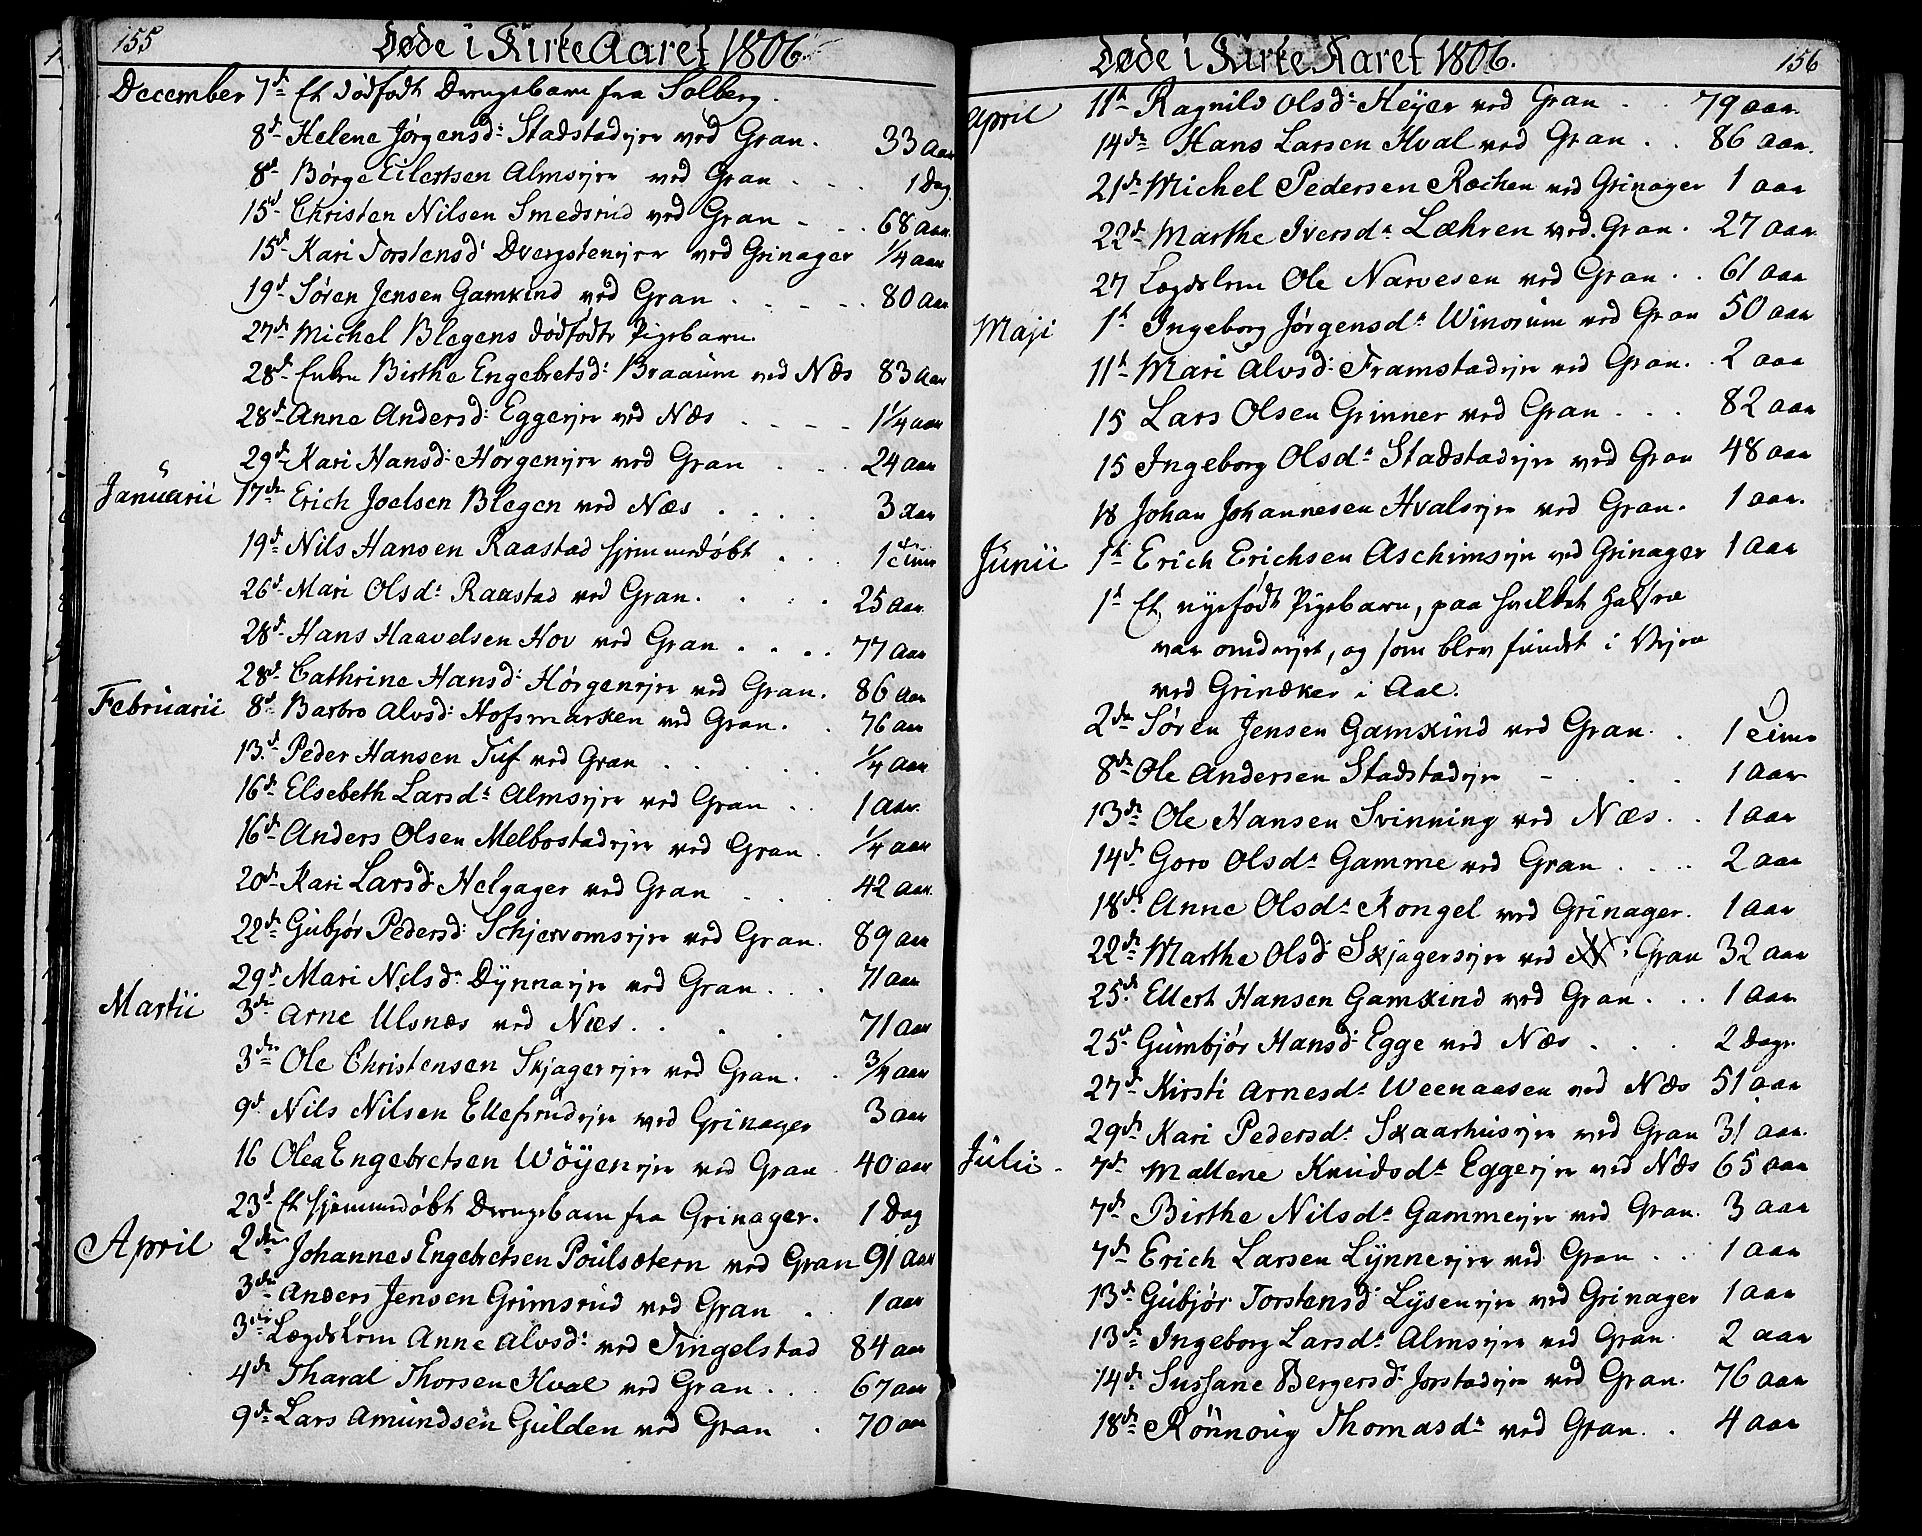 155
Døde i Kirke Aaret 1806.
December 7de Et dødfødt Drengebarn fra Solberg.
8de Helene Jørgensd: Stadstadejer ved Gran. 33 aar
8de Børge Eilertsen Almsejer ved Gran 1 Dag.
15de Christen Nilsen Smedsrud ved Gran 68 aar.
15de Kari Torstensd: Dvergstenejer ved Grinager 1/4 aar
19de Søren Jensen Gamkind ved Gran 80 aar
27de Michel Blegens dødfødte Pigebarn.
28de Enken Birthe Engebretsd: Braaum ved Næs 83 aar
28de Anne Andersd: Eggeejer ved Næs 1 1/4 aar
29de Kari Hansd: Horgenejer ved Gran 24 aar
Januarii 17de Erich Joelsen Blegen ved Næs 3 aar
19de Nils Hansen Raastad hjemmedøbt 1 Time
26de Mari Olsd: Raastad ved Gran. 25 aar
28de Hans Haavelsen Hov ved Gran 77 aar
28de Cathrine Hansd: Hørgenejer ved Gran. 86 aar
Februarii 8de Barbro Alvsd: Hofsmarken ved Gran. 76 aar
13de Peder Hansen Tuf ved Gran 1/4 aar
16de Elsebeth Larsd: Almsejer ved Gran 1 aar.
16de Anders Olsen Melbostadejer ved Gran. 1/4 aar
20de Kari Larsd: Helgager ved Gran 42 aar.
22de Gubjør Pedersd: Schjervomsejer ved Gran. 89 aar
29de Mari Nilsd: Dynnaejer ved Gran 71 aar
Martii 3de Arne Ulsnæs ved Næs. 71 aar
3de Ole Christensen Skjagerejer ved Gran. 3/4 aar
9de Nils Nilsen Ellefsrudejer ved Grinager 3 aar
16 Olea Engebretsen Wøyenejer ved Gran 40 aar
23de Et hjemmedøbt Drengebarn fra Grinager. 1 Dag
April 2den Johannes Engebretsen Poulsætern ved Gran 91 aar
3die Anders Jensen Grimsrud ved Gran 1 aar
3die Lægdslem Anne Alvsd: ved Tingelstad 84 aar
4de Tharal Thorsen Hval ved Gran. 67 aar
9de Lars Amundsen Gulden ved Gran 70 aar
156
Døde i Kirke Aaret 1806.
April 11te Ragnild Olsd: Heyer ved Gran 79 aar.
14de Hans Larsen Hval ved Gran 86 aar.
21de Michel Pedersen Røchen ved Grinager 1 aar
22de Marthe Iversd: Læhren ved Gran. 27 aar
27 Lægdslem Ole Narvesen ved Gran 61 aar
Maji 1te Ingeborg Jørgensd: Winorum ved Gran 50 aar
11te Mari Alvsd: Framstadejer ved Gran. 2 aar
15 Lars Olsen Grinner ved Gran 82 aar
15 Ingeborg Olsd: Stadstadejer ved Gran 48 aar
18 Johan Johannesen Hvalsejer ved Gran. 1 aar.
Junii 1te Erich Erichsen Aschimsejer ved Grinager 1 aar
1te Et nyefødt Pigebarn, paa hvilket Halsen
var omdrejet, og som blev fundet i Vejen
ved Grinæker i Aal.
2den Søren Jensen Gamkind ved Gran. 1 Time
8de Ole Andersen Stadstadejer 1 aar
13de Ole Hansen Svinning ved Næs. 1 aar
14de Goro Olsd: Gamme ved Gran 2 aar
18de Anne Olsd: Kongel ved Grinager. 1 aar
22de Marthe Olsd: Skjagersejer ved Gran 32 aar
25de Ellert Hansen Gamkind ved Gran. 1 aar
25de Gumbjør Hansd: Egge ved Næs 2 Dage
27de Kirsti Arnesd: Weenaasen ved Næs 51 aar
29de Kari Pedersd: Skaarhusejer ved Gran 31 aar.
Julii 7de Mallene Knudsd: Eggeejer ved Næs 65 aar
7de Birthe Nilsd: Gammeejer ved Gran. 3 aar
7de Erich Larsen Lynneejer ved Gran 1 aar
13de Gubjør Torstensd: Lysenejer ved Grinager 1 aar
13de Ingeborg Larsd: Almsejer ved Gran 2 aar
14de Sussane Bergersd: Jorstadejer ved Gran. 76 aar
18de Rønnoug Thomasd: ved Gran. 4 aar